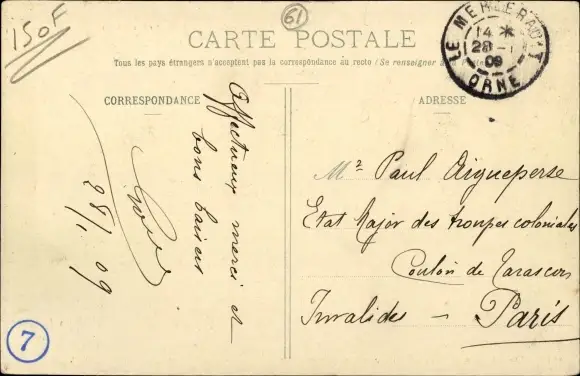 150F
61
CARTE POSTALE
Tous les pays étrangers n'acceptent pas la correspondance au recto (Se renseigner à la Poste)
LE MERLERAULT
14 *
28 -1
09
ORNE
CORRESPONDANCE
ADRESSE
Affectueux merci et
bons baisers
28/1 09
Mr Paul Aigueperse
Etat Major des troupes coloniales
de Tarascon
Invalides - Paris
7